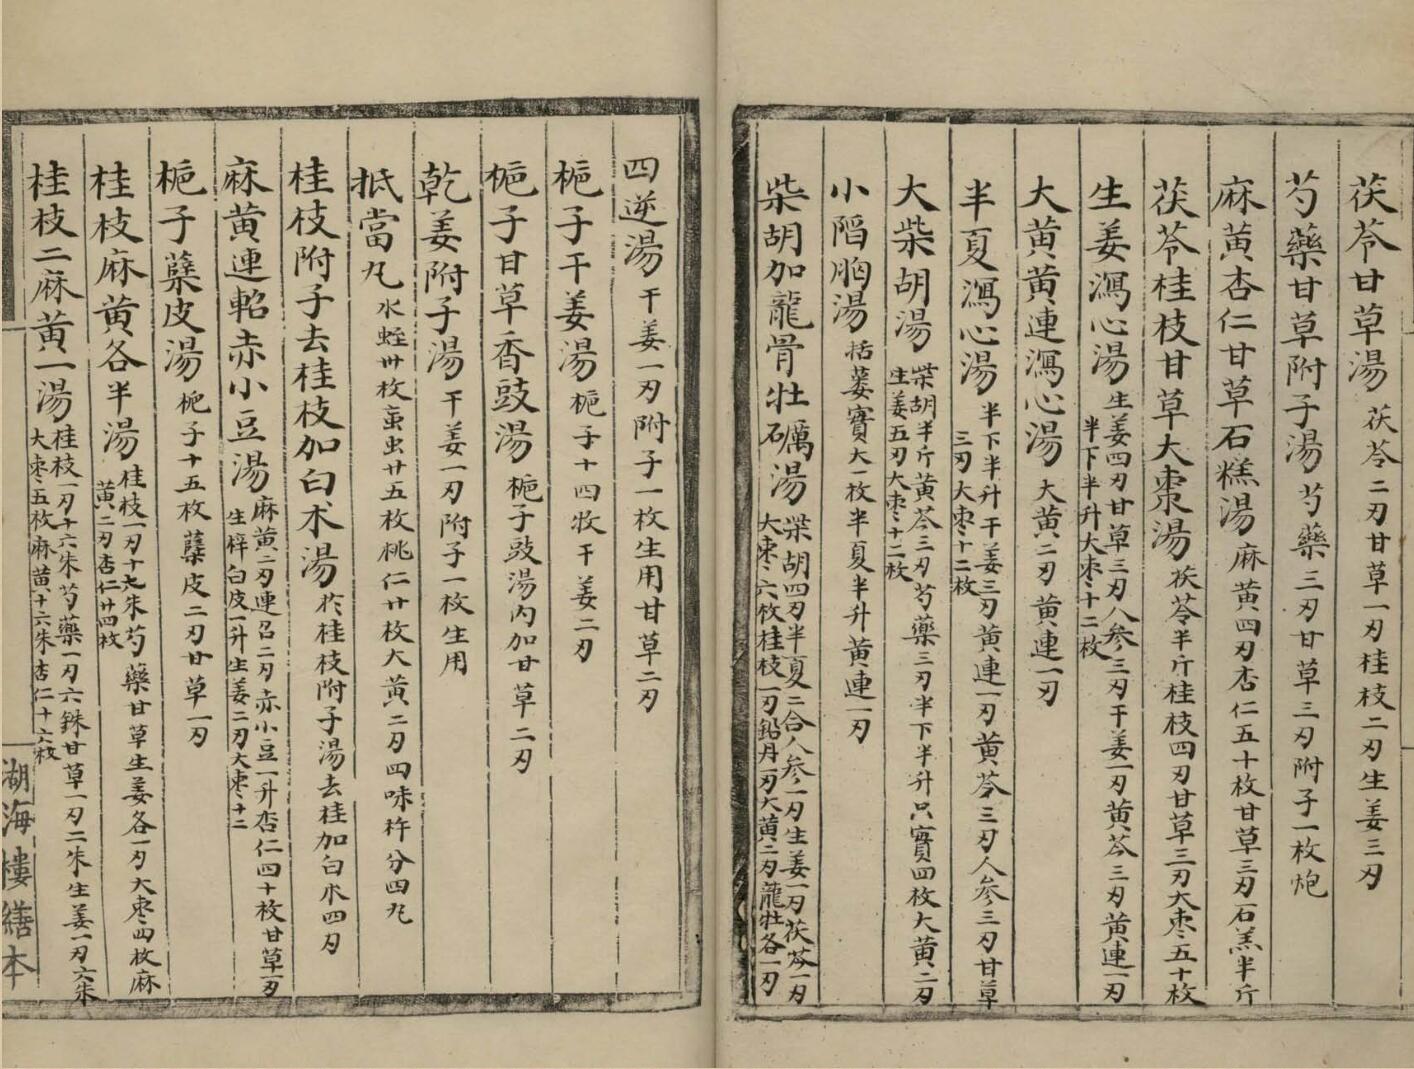 茯苓甘草湯 茯苓二刃甘草一刃桂枝二刃生姜三刃
芍藥甘草附子湯 芍藥三刃甘草三刃附子一枚炮
麻黃杏仁甘草石糕湯 麻黃四刃杏仁五十枚甘草三刃石羔半斤
茯苓桂枝甘草大棗湯 茯苓半斤桂枝四刃甘草三刃大枣五十枚
生姜瀉心湯 生姜四刃甘草三刃人参三刃干姜一刃黄芩三刃黄連一刃
半下半升大枣十二枚
大黃黃連瀉心湯 大黄二刃黄連一刃
半夏瀉心湯 半下半升干姜三刃黄連一刃黄芩三刃人参三刃甘草
三刃大枣十二枚
大柴胡湯 柴胡半斤黄芩三刃芍藥三刃半下半升只實四枚大黄二刃
生姜五刃大枣十二枚
小陷胸湯 括蔞實大一枚半夏半升黄連一刃
柴胡加龍骨牡礪湯 柴胡四刃半夏二合人参一刃生姜一刃茯苓一刃
大枣六枚桂枝一刃鉛丹一刃大黄二刃龍牡各一刃
四逆湯 干姜一刃附子一枚生用甘草二刃
梔子干姜湯 梔子十四牧干姜二刃
梔子甘草香豉湯 梔子豉湯内加甘草二刃
乾姜附子湯 干姜一刃附子一枚生用
抵當丸 水蛭卅枚䖟虫廿五枚桃仁廿枚大黄二刃四味杵分四丸
桂枝附子去桂枝加白术湯 於桂枝附子湯去桂加白朮四刃
麻黄連軺赤小豆湯 麻黄二刃連召二刃赤小豆一升杏仁四十枚甘草一刃
生梓白皮一升生姜二刃大枣十二
梔子蘗皮湯 梔子十五枚蘗皮二刃甘草一刃
桂枝麻黄各半湯 桂枝一刃十六朱芍藥甘草生姜各一刃大枣四枚麻
黄二刃杏仁廿四枚
桂枝二麻黄一湯 桂枝一刃十六朱芍藥一刃六銖甘草一刃二朱生姜一刃六朱
大枣五枚麻黄十六朱杏仁十六枚
湖海樓繕本